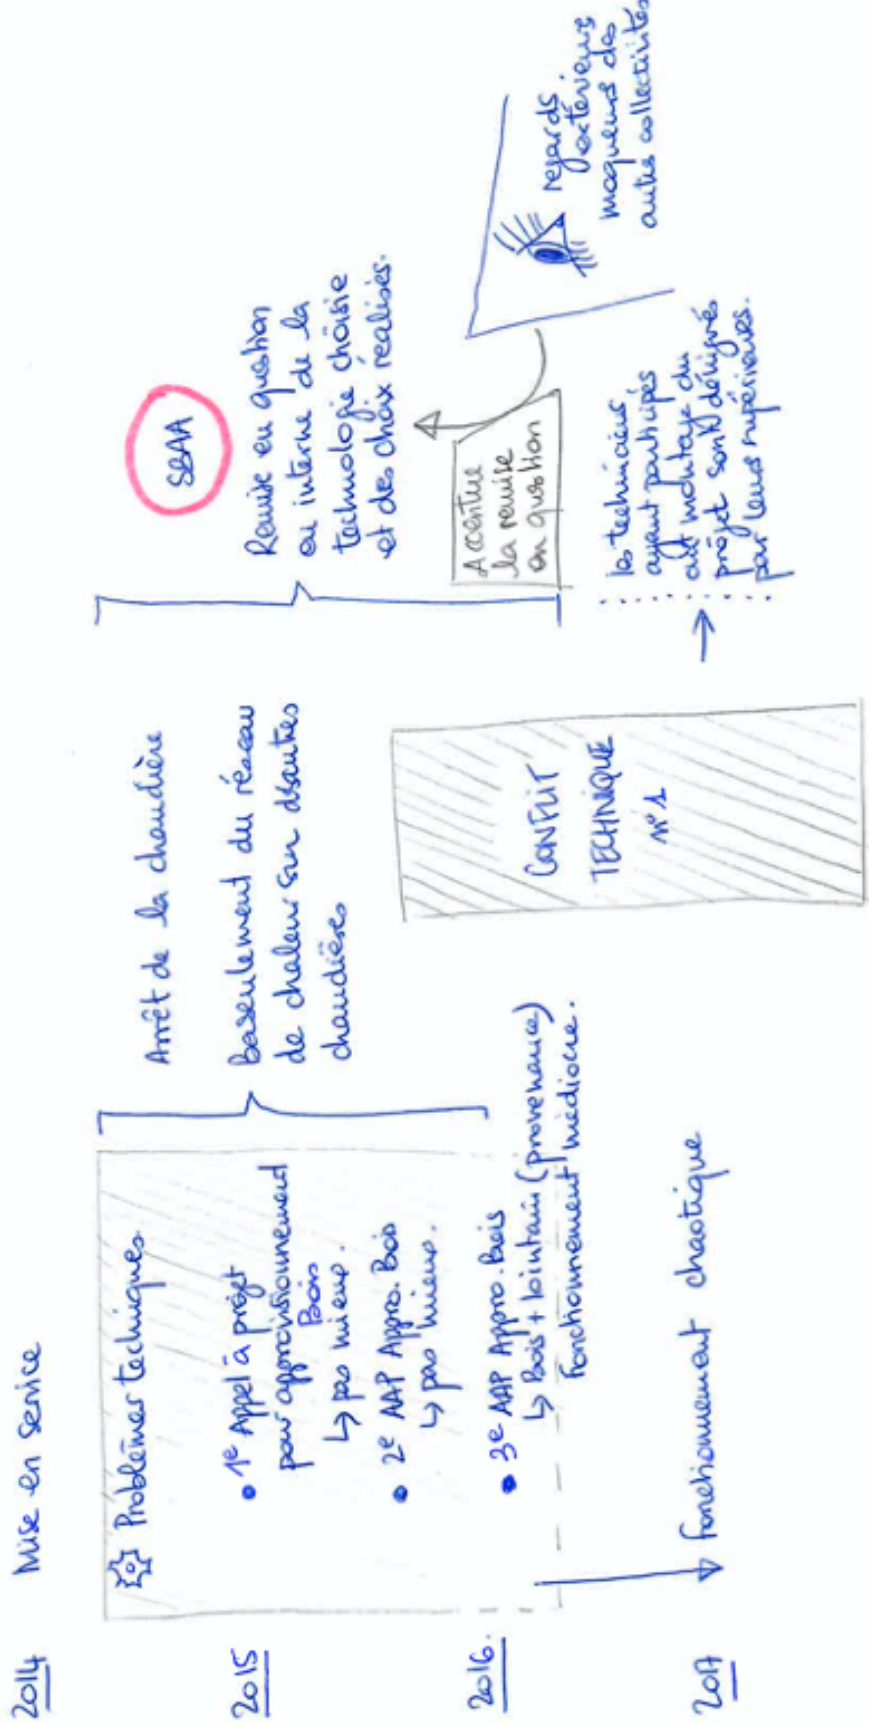 2014
Mise en service
Problèmes techniques
2015
• 1e Appel à projet
pour approvisionnement
Bois
↳ pas mieux.
• 2e AAP Appro. Bois
↳ pas mieux.
2016.
• 3e AAP Appro. Bois
↳ Bois + lointain (provenance)
Fonctionnement médiocre.
2017
Fonctionnement chaotique
Arrêt de la chaudière
Basculement du réseau
de chaleur sur d'autres
chaudières
CONFLIT
TECHNIQUE
n°1
Remise en question
en interne de la
technologie choisie
et des choix réalisés.
Accentue
la remise
en question
regards
extérieurs
moqueurs des
autres collectivités
les techniciens
ayant participés
au montage du
projet sont dénigrés
par leurs supérieurs.